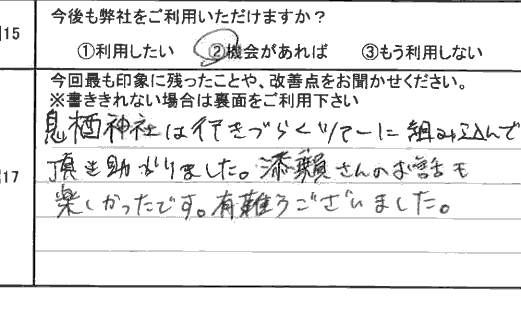 15
今後も弊社をご利用いただけますか?
①利用したい ②機会があれば ③もう利用しない
17
今回最も印象に残ったことや、改善点をお聞かせください。
※書ききれない場合は裏面をご利用下さい
息栖神社は行きづらくツアーに組み込んで
頂き助かりました。添乗員さんのお話も
楽しかったです。有難うございました。